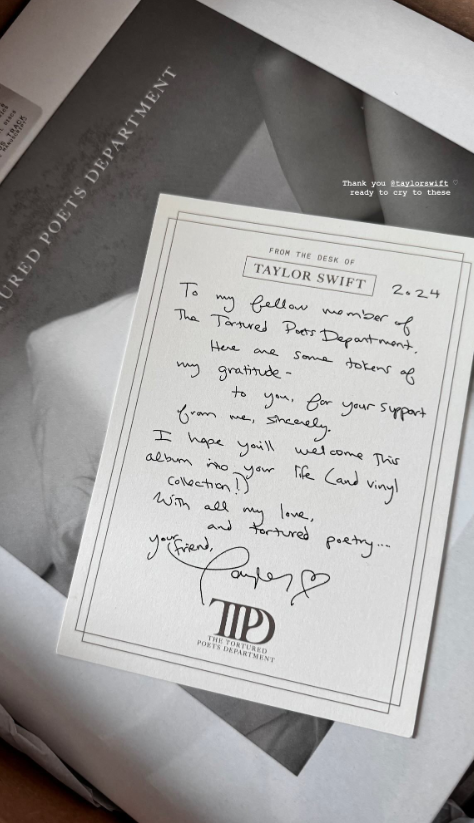 TURED POETS DEPARTMENT
Thank you @taylorswift ♡
ready to cry to these
FROM THE DESK OF
TAYLOR SWIFT
2024
To my fellow member of
The Tortured Poets Department.
Here are some tokens of
my gratitude -
to you, for your support
from me, sincerely.
I hope you'll welcome this
album into your life (and vinyl
collection!)
With all my love,
and tortured poetry....
your friend,
Taylor ♡
TTPD
THE TORTURED
POETS DEPARTMENT